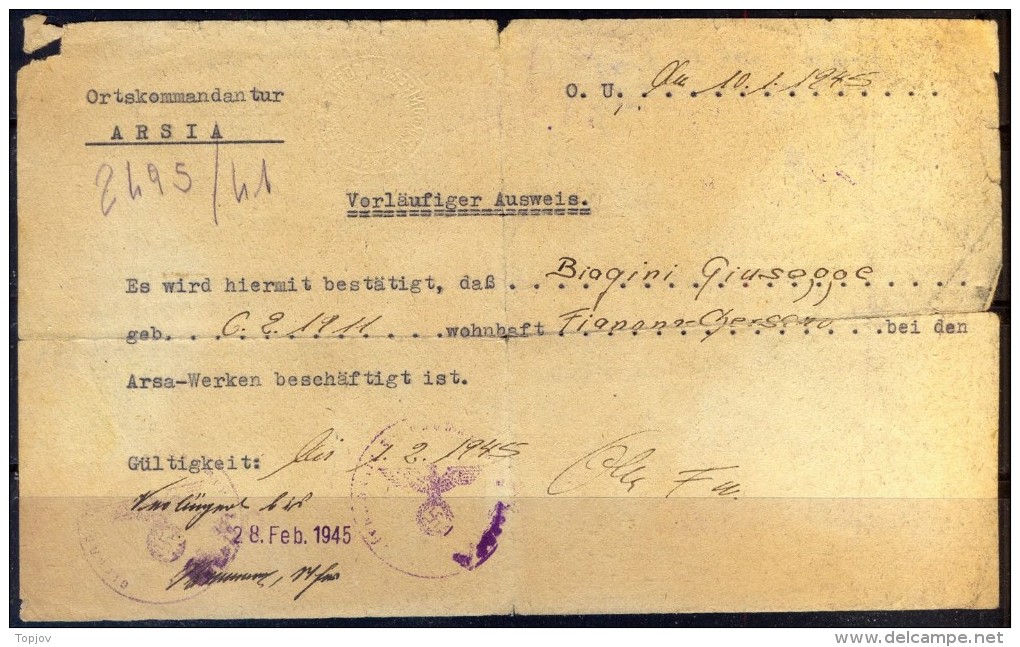 Ortskommandantur
O. U. den 10.1.1945
A R S I A
2495/41
Vorläufiger Ausweis.
Es wird hiermit bestätigt, daß Biagini Giuseppe
geb. 6.2.1911 wohnhaft Fianona-Chersano bei den
Arsa-Werken beschäftigt ist.
Gültigkeit: bis 1.2.1945
Verlängert bis
28. Feb. 1945
Topjov
delcampe.net